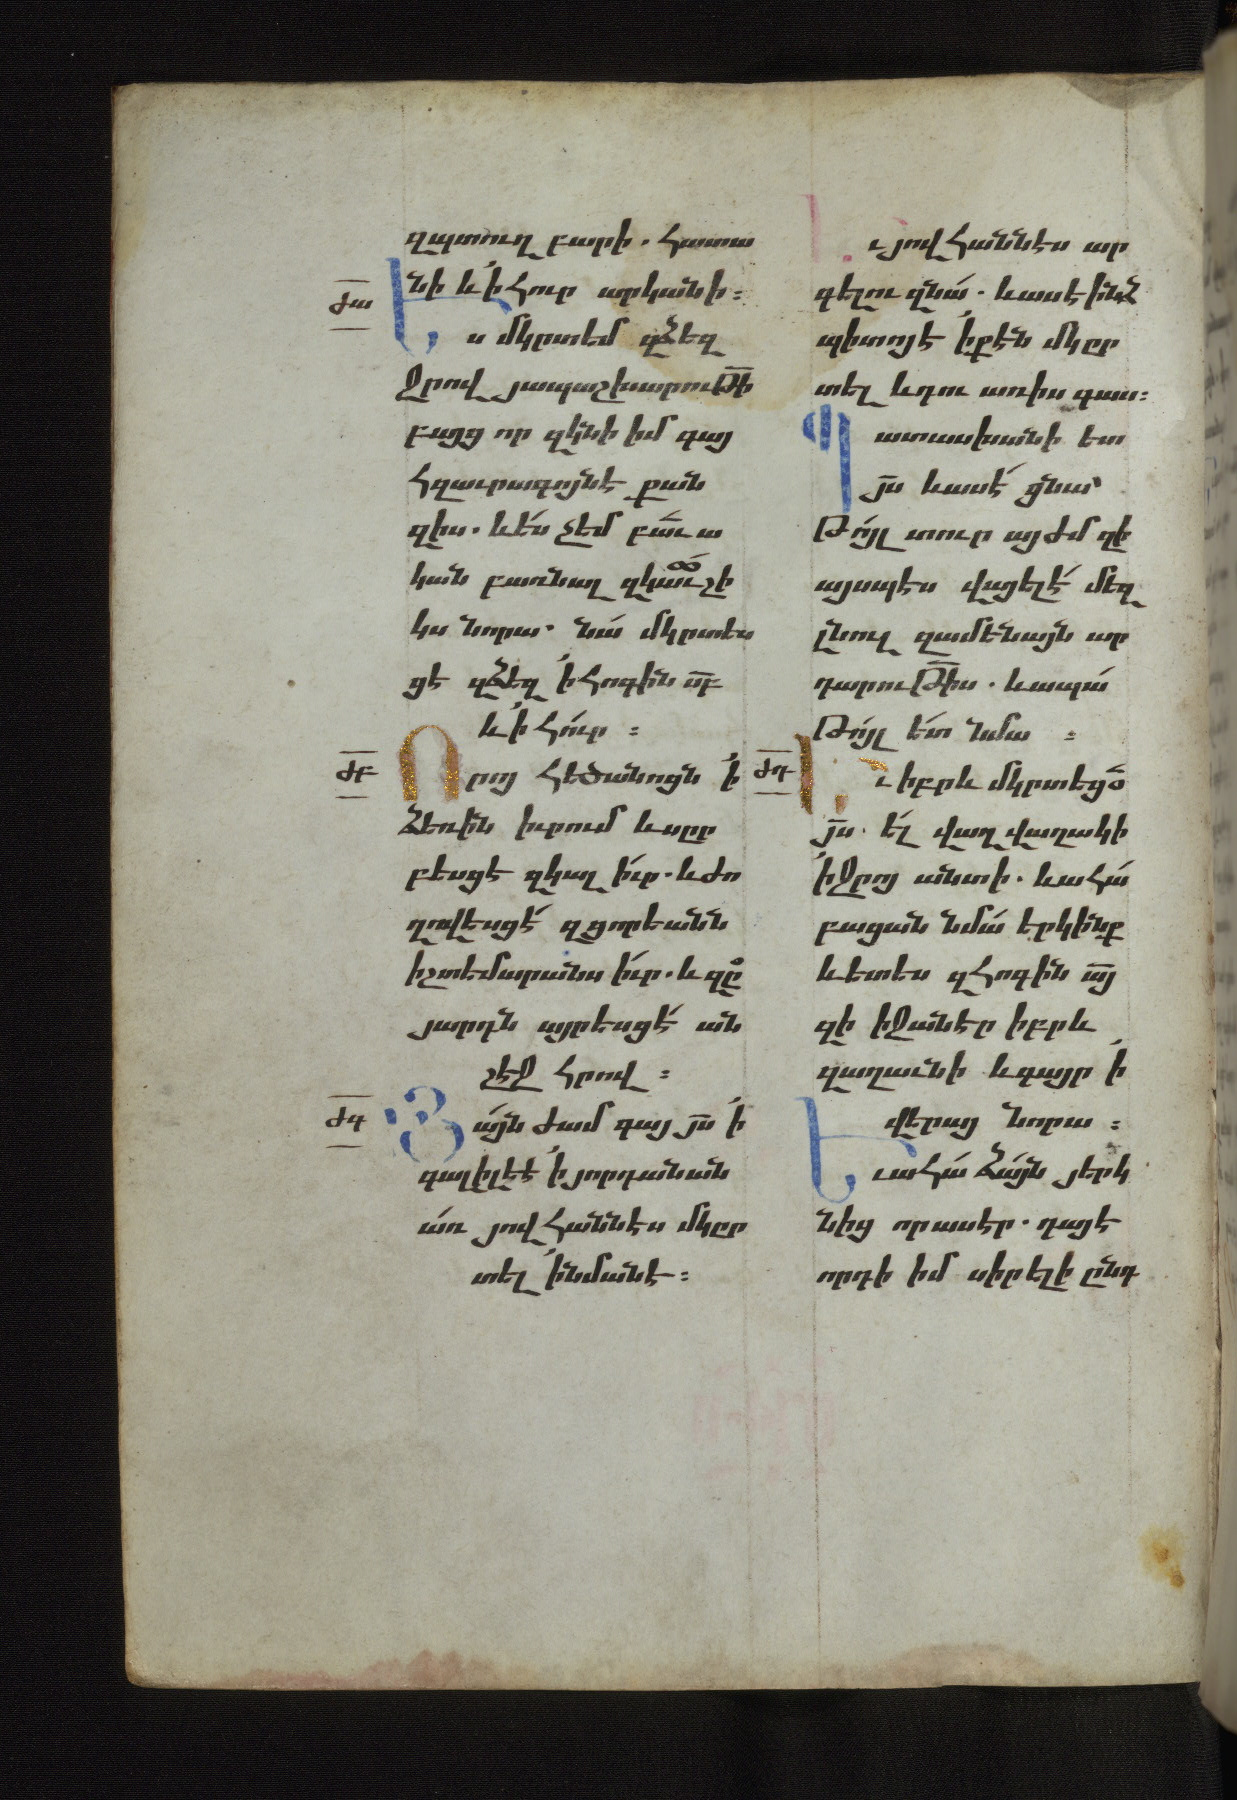 զպտուղ բարի. հատա
նի և՛ի հուր արկանի։
ԺԱ
Ես մկրտեմ զձեզ
ջրով յապաշխարութի
բայց որ զկնի իմ գայ
հզաւրագոյնէ քան
զիս. և ես չեմ բաւա
կան բառնալ զկաւշի
կս նորա. նա մկրտես
ցէ զձեզ ՛ի հոգին սբ
և՛ի հուր։
ԺԲ
Որոյ հեծանոցն ՛ի
ձեռին իւրում և սըր
բեսցէ զկալ իւր. և ժո
ղովեսցէ զցորեանն
իշտեմարանս իւր. և զը
յարդն այրեսցէ ան
շէջ հրով։
ԺԳ
Յայն ժամ գայ յս ՛ի
գալիլէէ ՛ի յորդանան
առ յովհաննէս մկըր
տել ՛ի նմանէ։
Եւ յովհաննէս ար
գելու զնա. և ասէ ինձ
պիտոյէ ՛ի քէն մկըր
տել և դու առիս գաս։
Պատասխանի ետ
յս և ասէ ցնա՝
Թոյլ տուր այժմ զի
այսպէս վայելէ մեզ
լնուլ զամենայն ար
դարութիս. և ապա
Թոյլ ետ նմա։
ԺԴ
Եւ իբրև մկրտեցօ
յս. ել վաղվաղակի
՛ի ջրոյ անտի. և ահա
բացան նմա երկինք
և ետես զհոգին այ
զի իջանէր իբրև
զաղաւնի և գայր ՛ի
վերայ նորա։
Եւ ահա ձայն յերկ
նից որ ասէր. դայէ
որդի իմ սիրելի ընդ